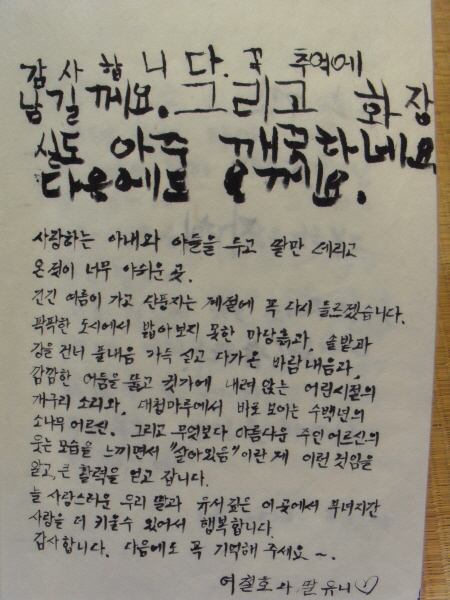 감사합니다. 꼭 추억에
남길께요. 그리고 화장
실도 아주 깨끗하네요
다음에도 올께요.
사랑하는 아내와 아들을 두고 딸만 데리고
온 것이 너무 아쉬운 곳.
긴긴 여름이 가고 단풍지는 계절에 꼭 다시 들르겠습니다.
팍팍한 도시에서 밟아보지 못한 마당흙과, 솔밭과
강을 건너 풀내음 가득 싣고 다가온 바람내음과,
깜깜한 어둠을 뚫고 귓가에 내려 앉는 어린시절의
개구리 소리와, 대청마루에서 바로 보이는 수백년의
소나무 어르신. 그리고 무엇보다 아름다운 주인 어르신의
웃는 모습을 느끼면서 "살아있음"이란 게 이런 것임을
알고, 큰 활력을 얻고 갑니다.
늘 사랑스러운 우리 딸과 유서 깊은 이 곳에서 부녀지간
사랑을 더 키울수 있어서 행복합니다.
감사합니다. 다음에도 꼭 기억해 주세요~.
여철호와 딸 유니♡